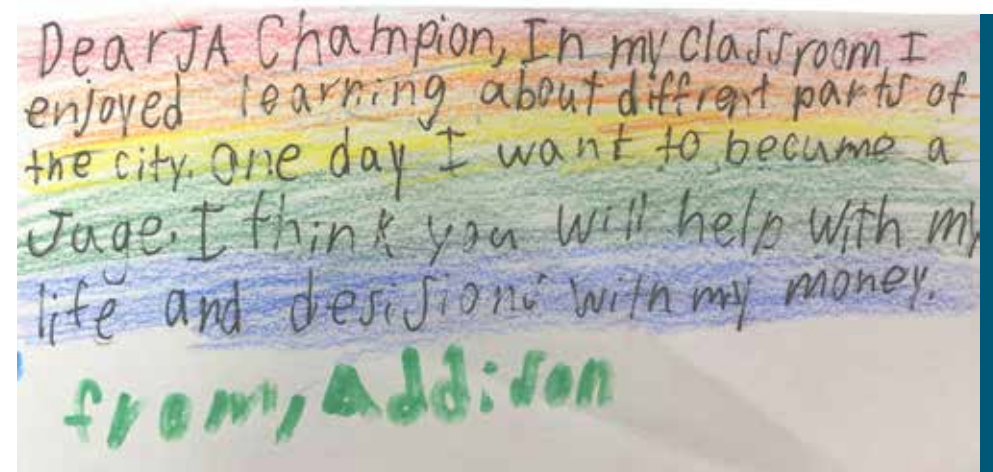 Dear JA Champion, In my classroom I
enjoyed learning about diffrent parts of
the city. One day I want to becume a
Juge. I think you will help with my
life and desisions with my money.
from, Addison